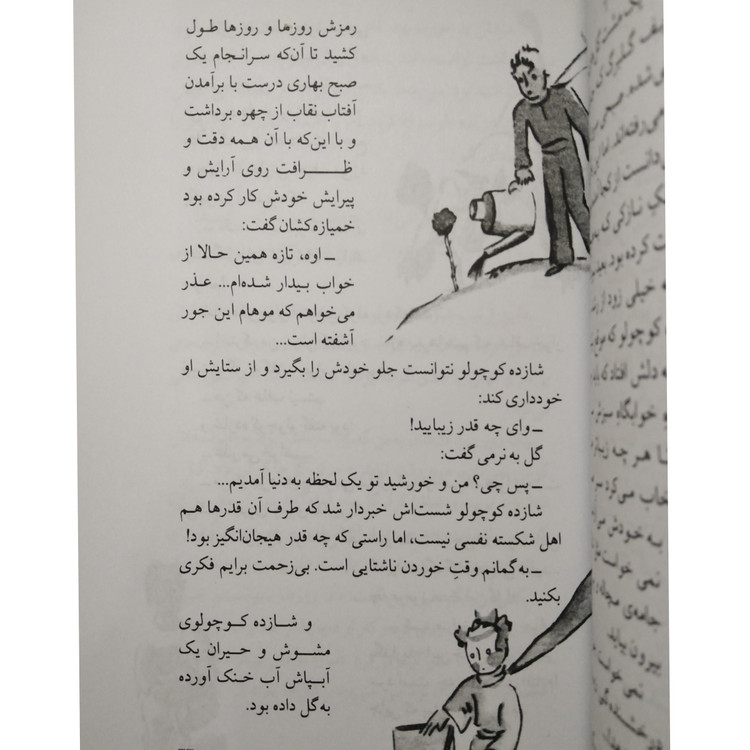 رمزش روزها و روزها طول
کشید تا آن‌که سرانجام یک
صبح بهاری درست با برآمدن
آفتاب نقاب از چهره برداشت
و با این‌که با آن همه دقت و
ظرافت روی آرایش و
پیرایش خودش کار کرده بود
خمیازه‌کشان گفت:
ـ اوه، تازه همین حالا از
خواب بیدار شده‌ام... عذر
می‌خواهم که موهام این جور
آشفته است...
شازده کوچولو نتوانست جلو خودش را بگیرد و از ستایش او
خودداری کند:
ـ وای چه قدر زیبایید!
گل به نرمی گفت:
ـ پس چی؟ من و خورشید تو یک لحظه به دنیا آمدیم...
شازده کوچولو شست‌اش خبردار شد که طرف آن قدرها هم
اهل شکسته نفسی نیست، اما راستی که چه قدر هیجان‌انگیز بود!
ـ به‌گمانم وقتِ خوردن ناشتایی است. بی‌زحمت برایم فکری
بکنید.
و شازده کوچولوی
مشوش و حیران یک
آبپاش آب خنک آورده
به‌گل داده بود.